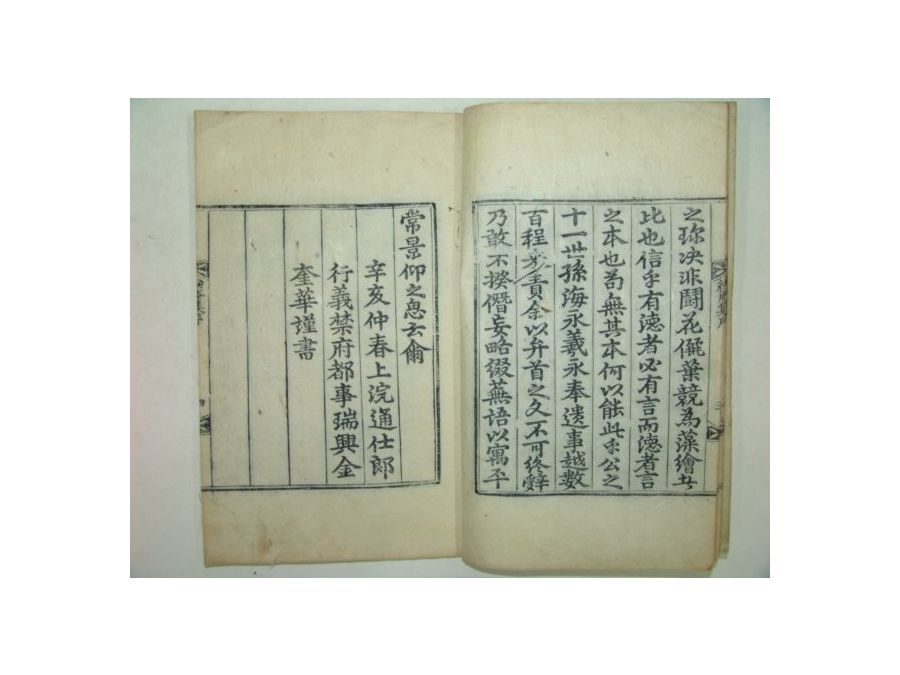 之珎决非鬪花儷葉競爲藻繪者
比也信乎有德者必有言而德者言
之本也苟無其本何以能此乎公之
十一世孫海永羲永奉遺事越數
百程来責余以弁首之文不可終辭
乃敢不揆僭妄略綴蕪語以寓平
常景仰之思云爾
辛亥仲春上浣通仕郎
行義禁府都事瑞興金
奎華謹書
四